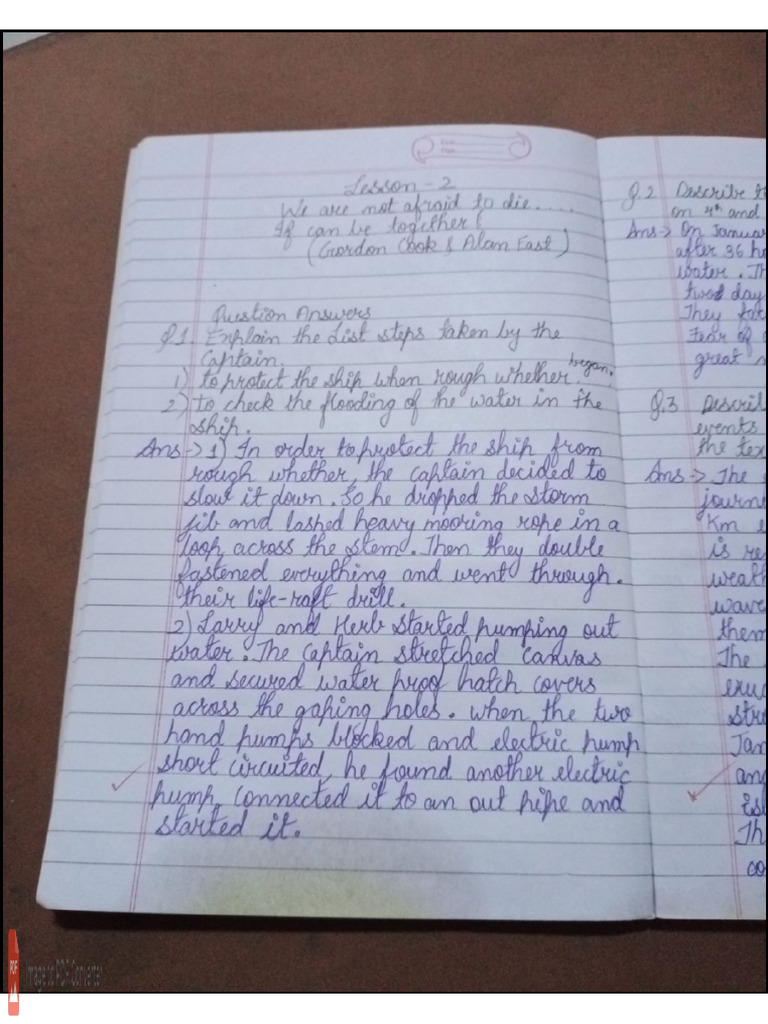 Lesson - 2
We are not afraid to die.....
If can be together!
(Gordon Cook & Alan East)
Question Answers
Q.1 Explain the List steps taken by the
Captain.
1) to protect the ship when rough whether began.
2) to check the flooding of he water in the
ship.
Ans -> 1) In order to protect the ship from
rough whether, the captain decided to
slow it down. So he dropped the storm
jib and lashed heavy mooring rope in a
loop across the stem. Then they double
fastened everything and went through.
their life-raft drill.
2) Larry and Herb started pumping out
water. The captain stretched canvas
and secured water proof hatch covers
across the gaping holes. When the two
hand pumps blocked and electric pump
short circuited, he found another electric
pump, connected it to an out pipe and
started it.
Q.2 Describe
on 4th and
Ans -> On Januar
after 36 h
water. Th
two day
They
fear of
great
Q.3 Descri
events
the tex
Ans -> The
journe
Km
is re
weath
wave
them
The
Stre
Jan
an
Th
co
Image to PDF Converter
PDF